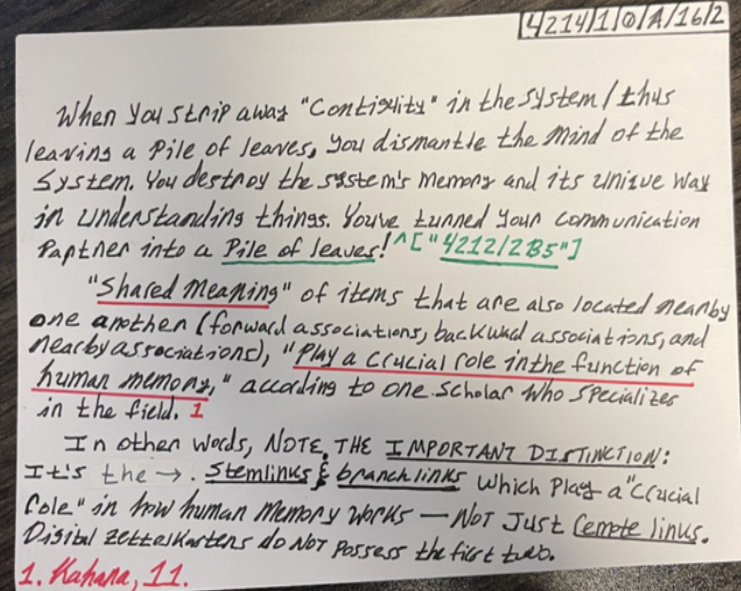 4214/1/0/A/16/2
When you strip away "Contiguity" in the system / thus
leaving a Pile of leaves, you dismantle the mind of the
System. You destroy the system's memory and its unique way
in understanding things. You've turned your communication
Partner into a Pile of leaves! ^["4212/2B5"]
"Shared Meaning" of items that are also located nearby
one another (forward associations, backward associations, and
nearby associations), "Play a crucial role in the function of
human memory," according to one scholar who specializes
in the field. 1
In other words, NOTE THE IMPORTANT DISTINCTION:
It's the → . Stemlinks & branchlinks which play a "crucial
role" in how human memory works — NOT Just remote links.
Digital zettelkastens do NOT possess the first two.
1. Kahana, 11.